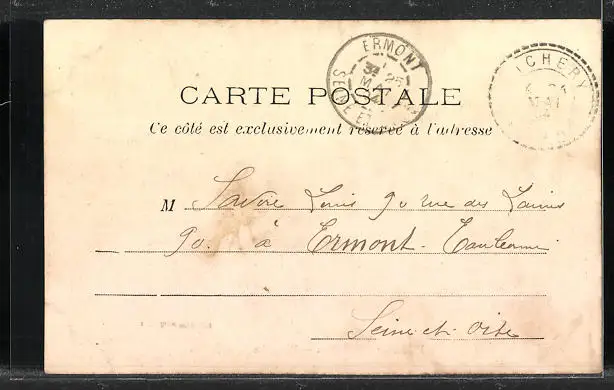 ERMONT
SEINE ET
ICHERY
MAI
CARTE POSTALE
Ce côté est exclusivement réservé à l'adresse
M Savoie Louis 90 rue des
90. à Ermont-
Seine-et-Oise